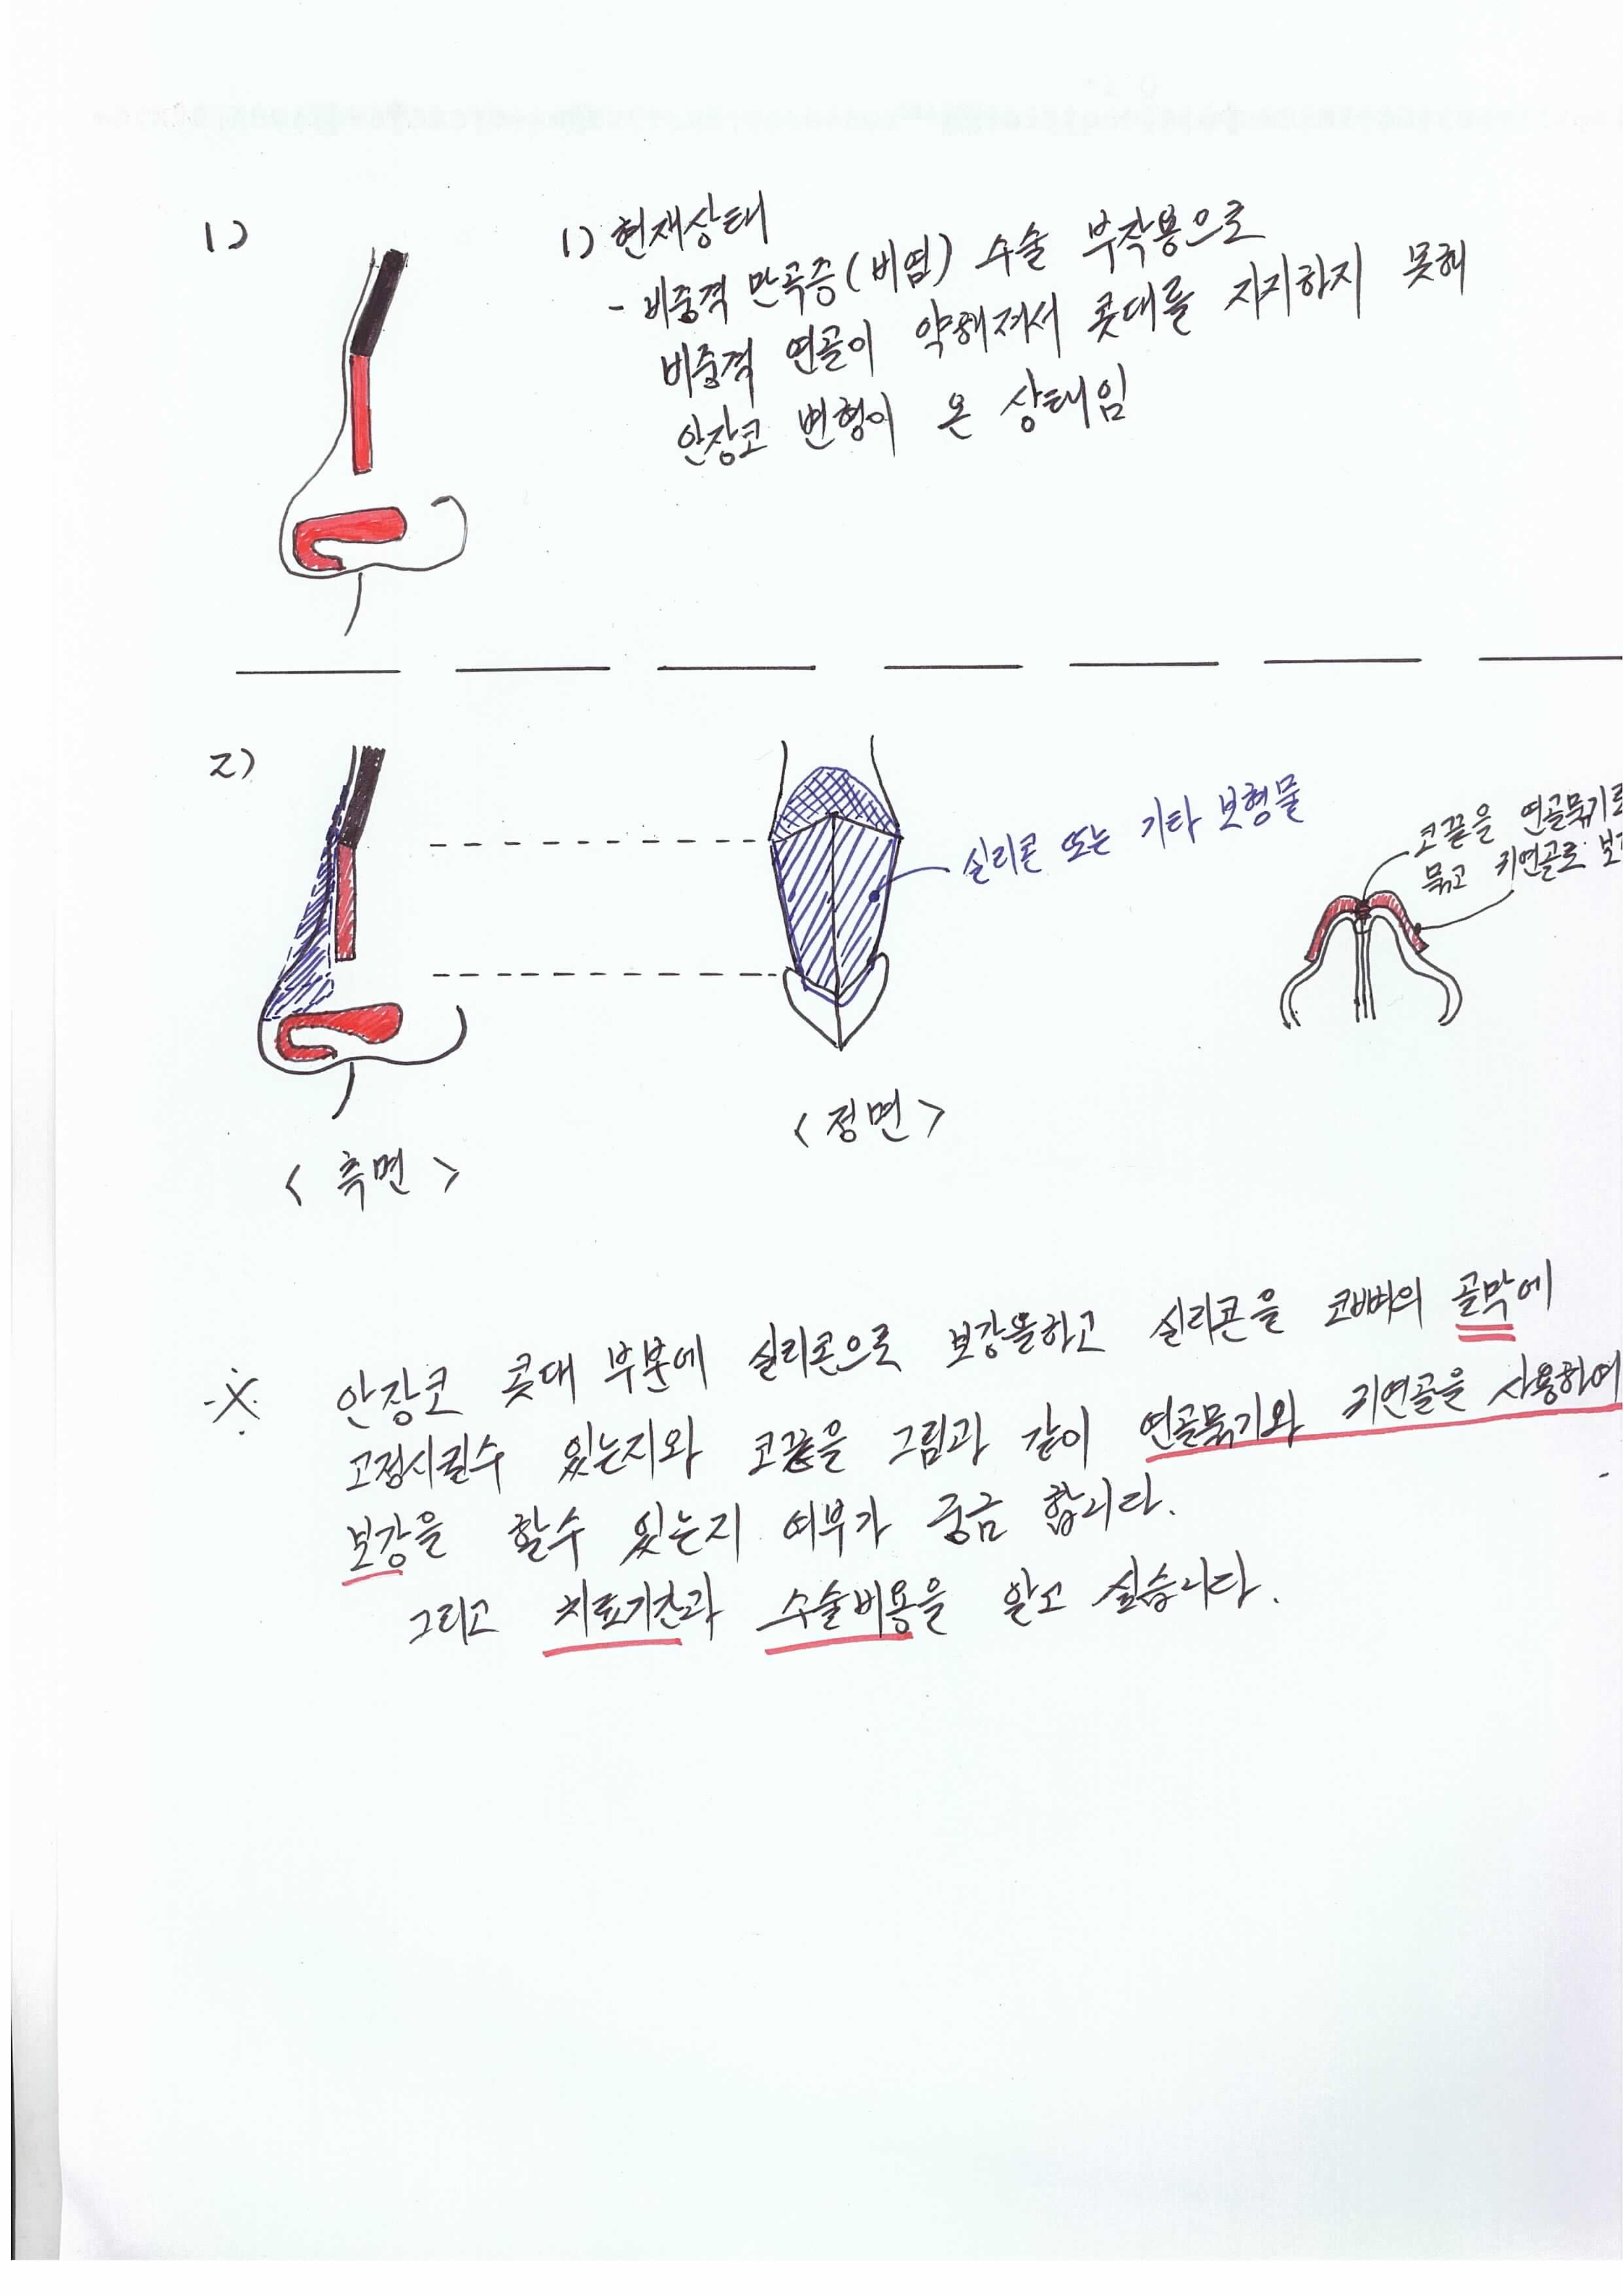 1)
1) 현재상태
- 비중격 만곡증(비염) 수술 부작용으로
비중격 연골이 약해져서 콧대를 지지하지 못해
안장코 변형이 온 상태임
2)
실리콘 또는 기타 보형물
코끝을 연골묶기로
묶고 귀연골로
<정면>
<측면>
※ 안장코 콧대 부분에 실리콘으로 보강을하고 실리콘을 코뼈의 골막에
고정시킬수 있는지와 코끝을 그림과 같이 연골묶기와 귀연골을 사용하여
보강을 할수 있는지 여부가 궁금 합니다.
그리고 치료기간과 수술비용을 알고 싶습니다.